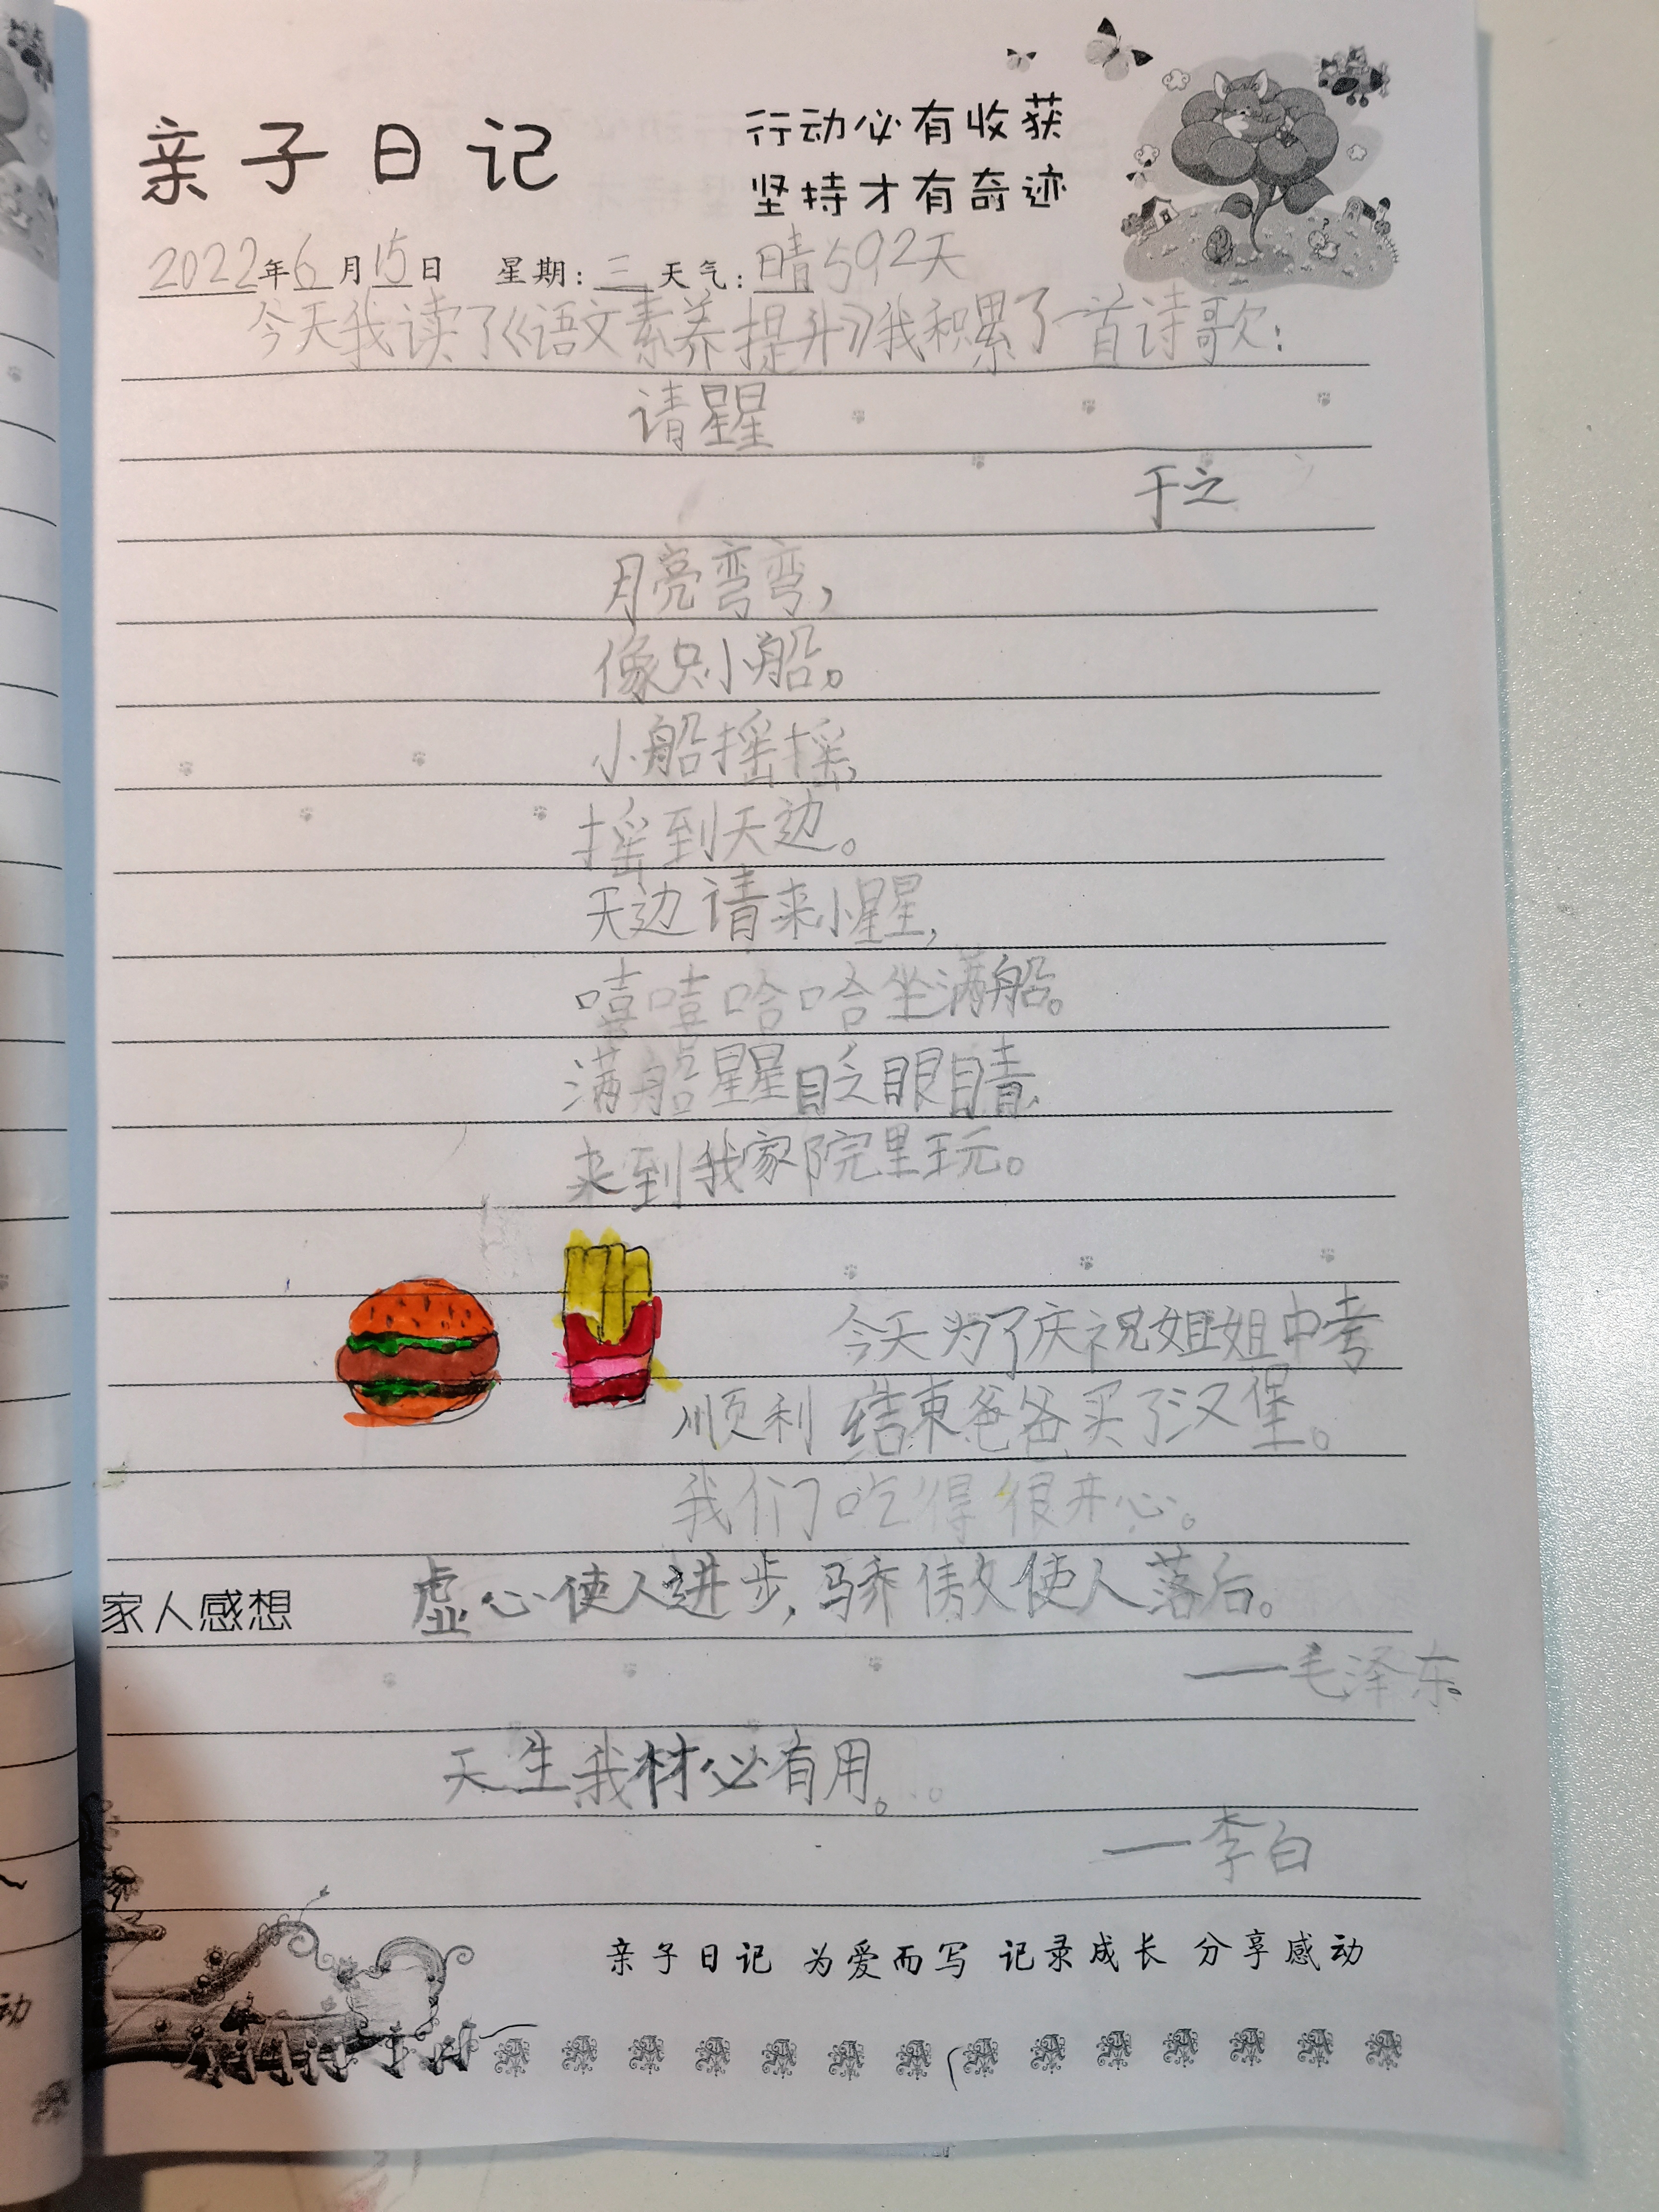 亲子日记
行动必有收获
坚持才有奇迹
2022年6月15日 星期:三 天气:晴592天
今天我读了《语文素养提升》我积累了一首诗歌:
请星星
于之
月亮弯弯,
像只小船。
小船摇摇,
摇到天边。
天边请来小星星,
嘻嘻哈哈坐满船。
满船星星眨眼睛,
来到我家院里玩。
今天为了庆祝姐姐中考
顺利结束爸爸买了汉堡。
我们吃得很开心。
家人感想 虚心使人进步,骄傲使人落后。
——毛泽东
天生我材必有用。
——李白
亲子日记 为爱而写 记录成长 分享感动
动